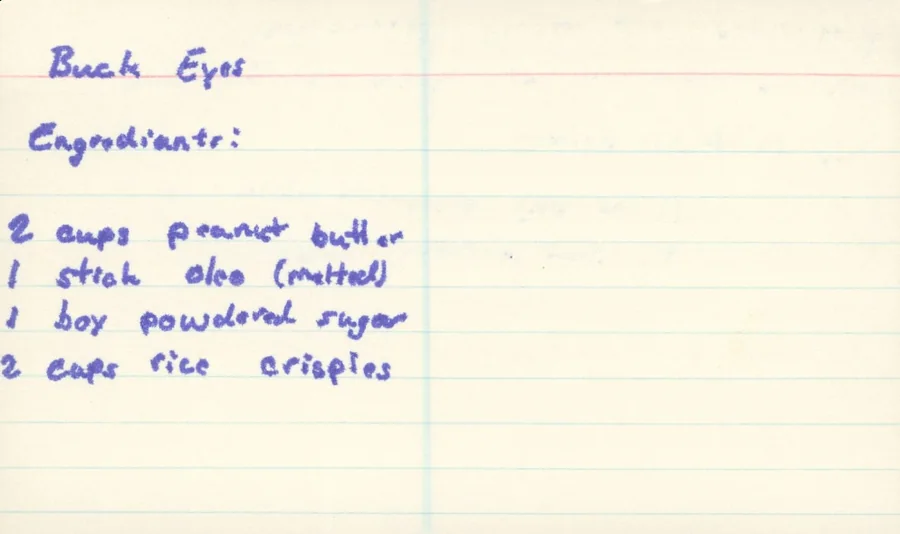 Buck Eyes
Engrediants:
2 cups peanut butter
1 stick oleo (melted)
1 box powdered sugar
2 cups rice crispies